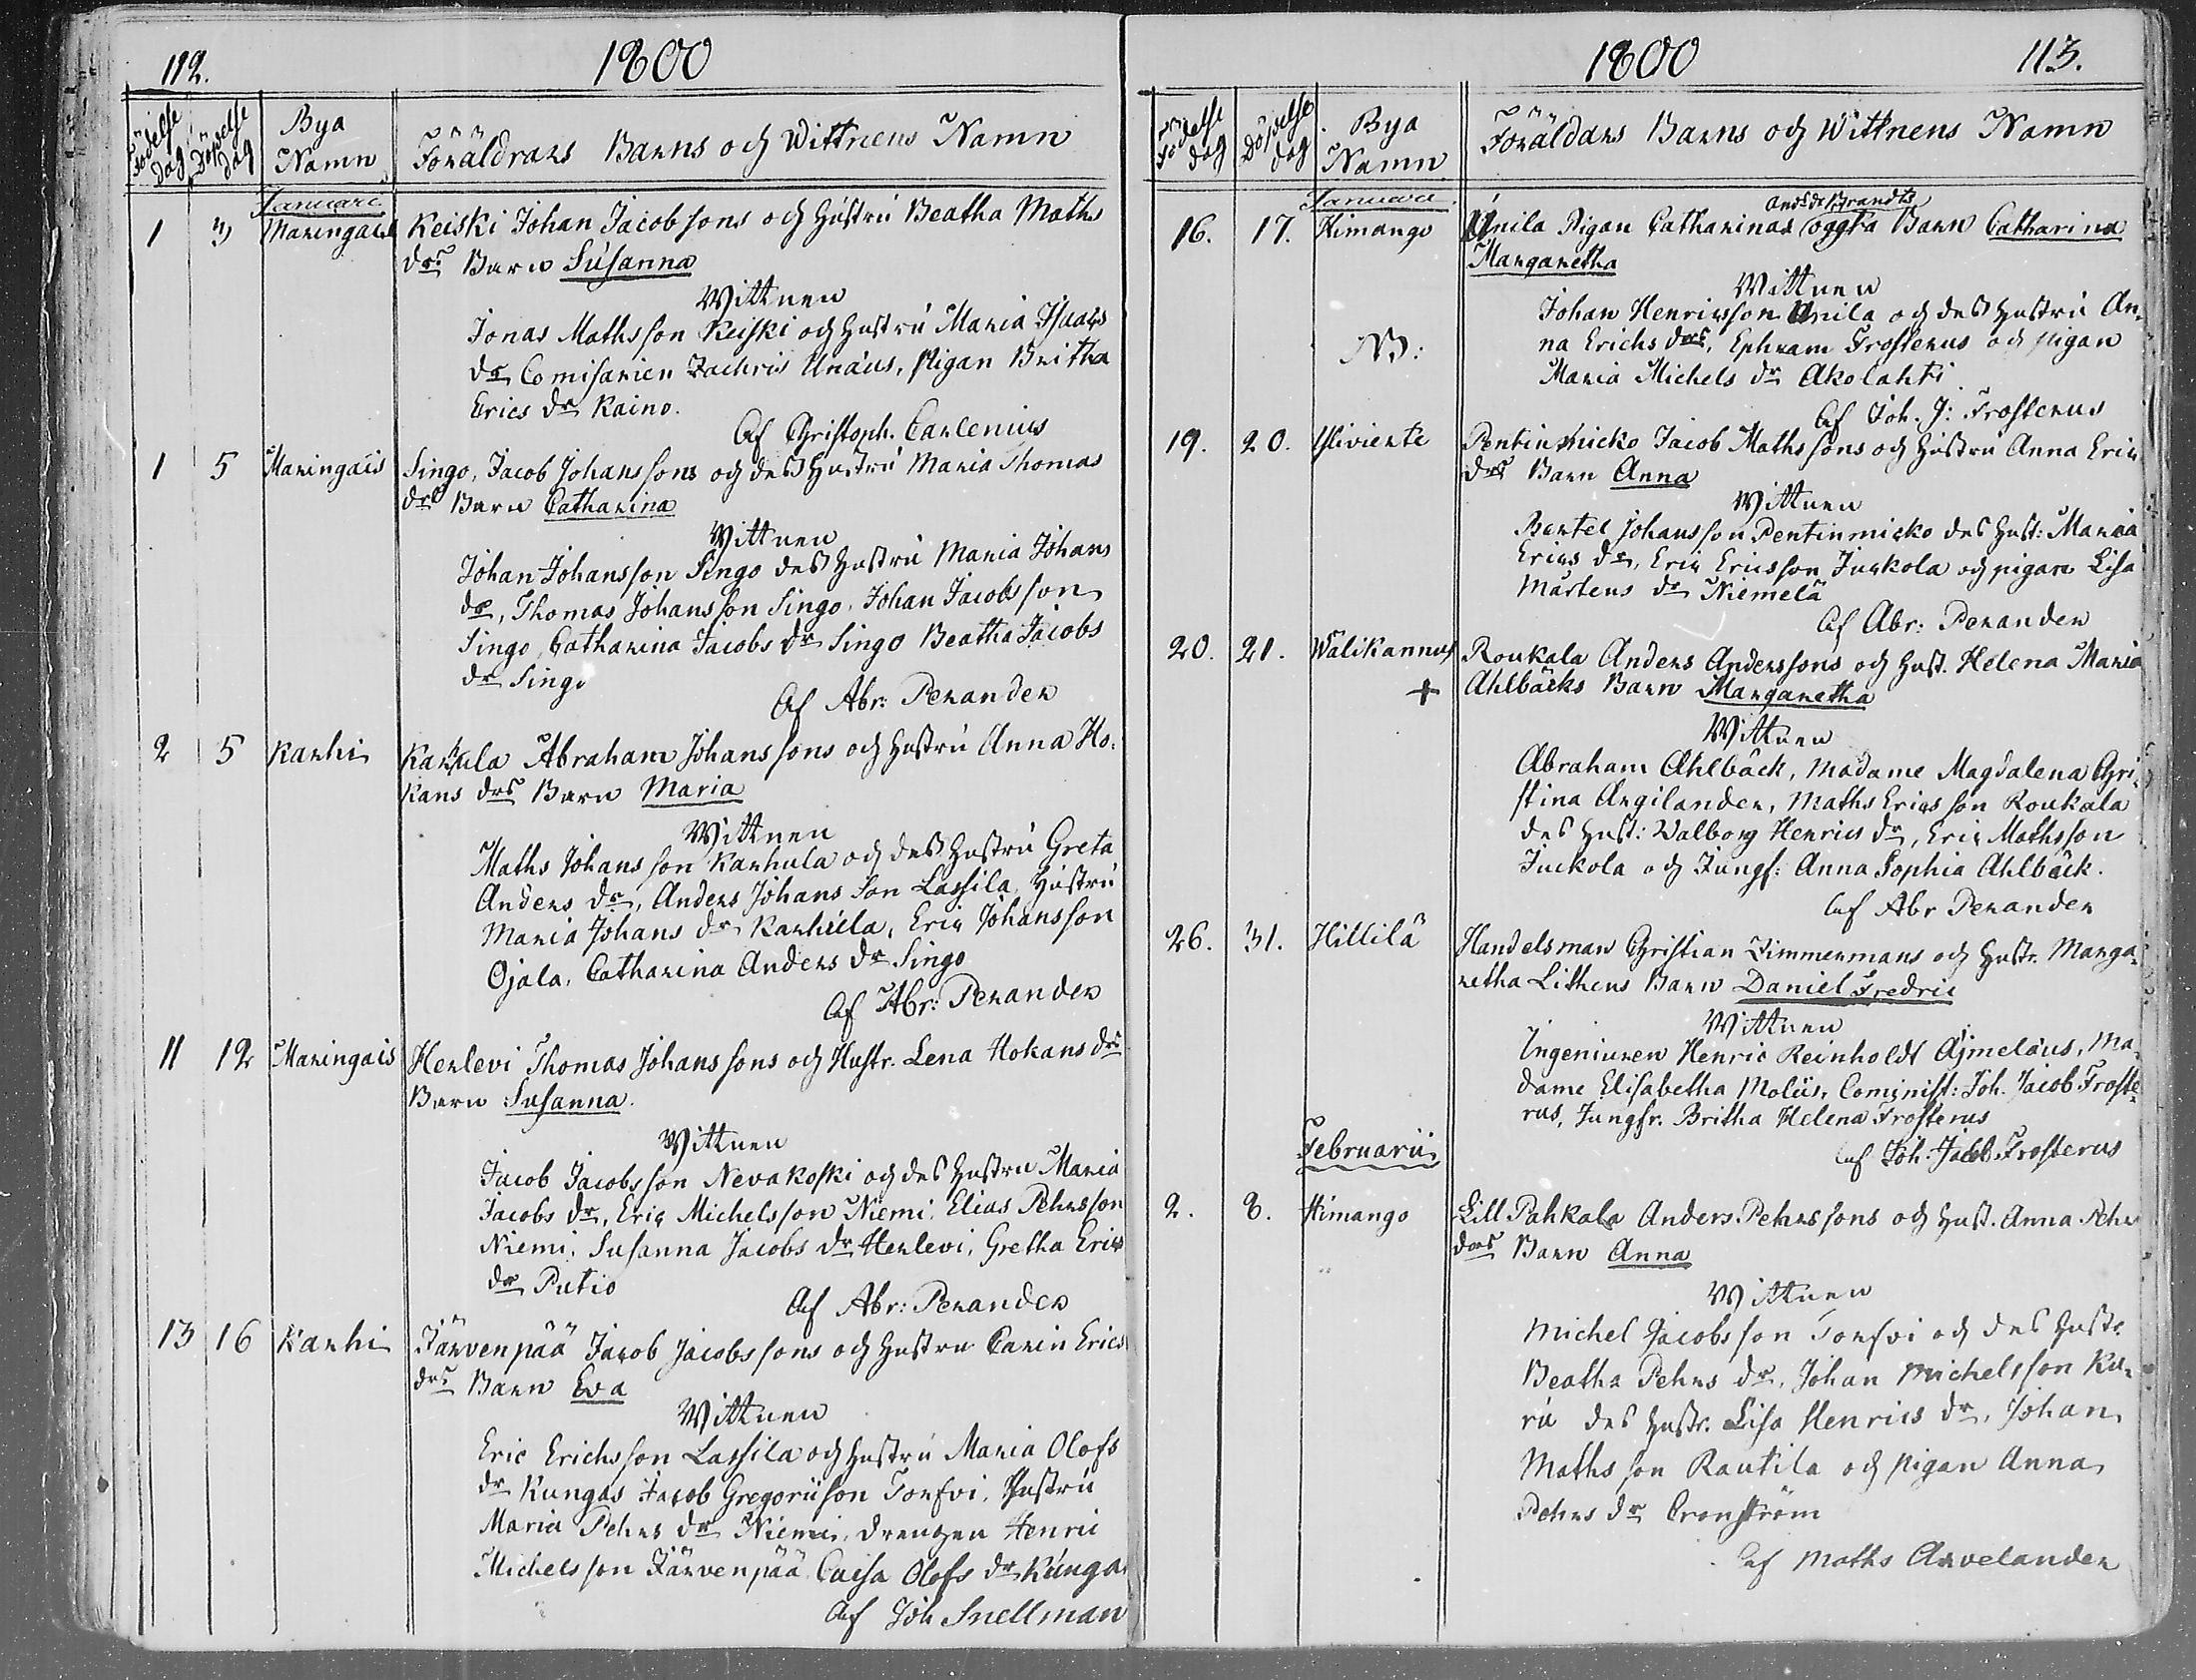 112.
1800
Födelse dag
Döpelse dag
Bya Namn
Föräldrars Barns och Wittnens Namn
Januari
1 3 Maringais Keiski Johan Jacobsons och Hustru Beatha Maths
drs Barn Susanna
Wittnen
Jonas Mathsson Keiski och Hustru Maria Isaacs
dr Comisarien Zachris Unæus, Pigan Britha
Erics dr Kaino.
Af Christoph. Carlenius
1 5 Maringais Singo, Jacob Johanssons och des Hustru Maria Thomas
drs Barn Catharina
Wittnen
Johan Johansson Singo des Hustru Maria Johans
dr, Thomas Johansson Singo, Johan Jacobsson
Singo, Catharina Jacobs dr Singo Beatha Jacobs
dr Singo
Af Abr: Perander
2 5 Karhi Karhula Abraham Johanssons och Hustru Anna Ho-
kans drs Barn Maria
Wittnen
Maths Johansson Karhula och des Hustru Greta
Anders dr, Anders Johansson Lassila, Hustru
Maria Johans dr Karhula, Eric Johansson
Ojala, Catharina Anders dr Singo
Af Abr: Perander
11 12 Maringais Herlevi Thomas Johanssons och Hustr. Lena Hokans drs
Barn Susanna.
Wittnen
Jacob Jacobsson Nevakoski och des Hustru Maria
Jacobs dr, Eric Michelsson Niemi, Elias Pehrsson
Niemi, Susanna Jacobs dr Herlevi, Gretha Erics
dr Putio
Af Abr: Perander
13 16 Karhi Järvenpää Jacob Jacobssons och Hustru Carin Erics
drs Barn Eva
Wittnen
Eric Erichsson Lassila och Hustru Maria Olofs
dr Kungas Jacob Gregoriison Torfvi, Hustru
Maria Pehrs dr Niemi, Drengen Henric
Michelsson Järvenpää Caisa Olofs dr Kunga
Af Joh Snellman
1800
113.
Födelse dag
Döpelse dag
Bya Namn
Föräldars Barns och Wittnens Namn
Januarii
16. 17. Himango Unila Pigan Catharinas oägta Barn Catharina
Margaretha
Wittnen
Johan Henricsson Unila och des Hustru An-
na Erichs drs, Ephraim Frosterus och pigan
NB:
Maria Michels dr Akolahti
Af Joh. J: Frosterus
19. 20. Yliviente Pentinmicko Jacob Mathssons och Hustru Anna Eric
drs Barn Anna
Wittnen
Bertel Johansson Pentinmicko des Hust: Maria
Erics dr, Eric Ericsson Juckola och pigan Lisa
Mårtens dr Niemelä
Af Abr: Perander
20. 21. Wälikannus Roukala Anders Anderssons och Hust. Helena Maria
+ Ahlbäcks Barn Margaretha
Wittnen
Abraham Ahlbäck, Madame Magdalena Chri-
stina Argilander, Maths Ericsson Roukala
des Hust: Walborg Henrics dr, Eric Mathsson
Juckola och Jungf: Anna Sophia Ahlbäck.
Af Abr Perander
26. 31. Hillilä Handelsman Christian Zimmermans och Hustr. Marga-
retha Lithens Barn Daniel Fredric
Wittnen
Ingenieuren Henric Reinholdt Ajmelæus, Ma-
dame Elisabetha Moliis, Cominist: Joh. Jacob Froste-
rus, Jungfr. Britha Helena Frosterus
af Joh: Jacob. Frosterus
Februarii
2. 8. Himango Lill Pahkala Anders Pehrssons och Hust. Anna Pehr
drs Barn Anna
Wittnen
Michel Jacobsson Torfvi och des Hustr.
Beatha Pehrs dr, Johan Michelsson Ku-
ru des Hustr. Lisa Henrics dr, Johan
Mathsson Rautila och pigan Anna
Pehrs dr Cronström
af Maths Arvelander